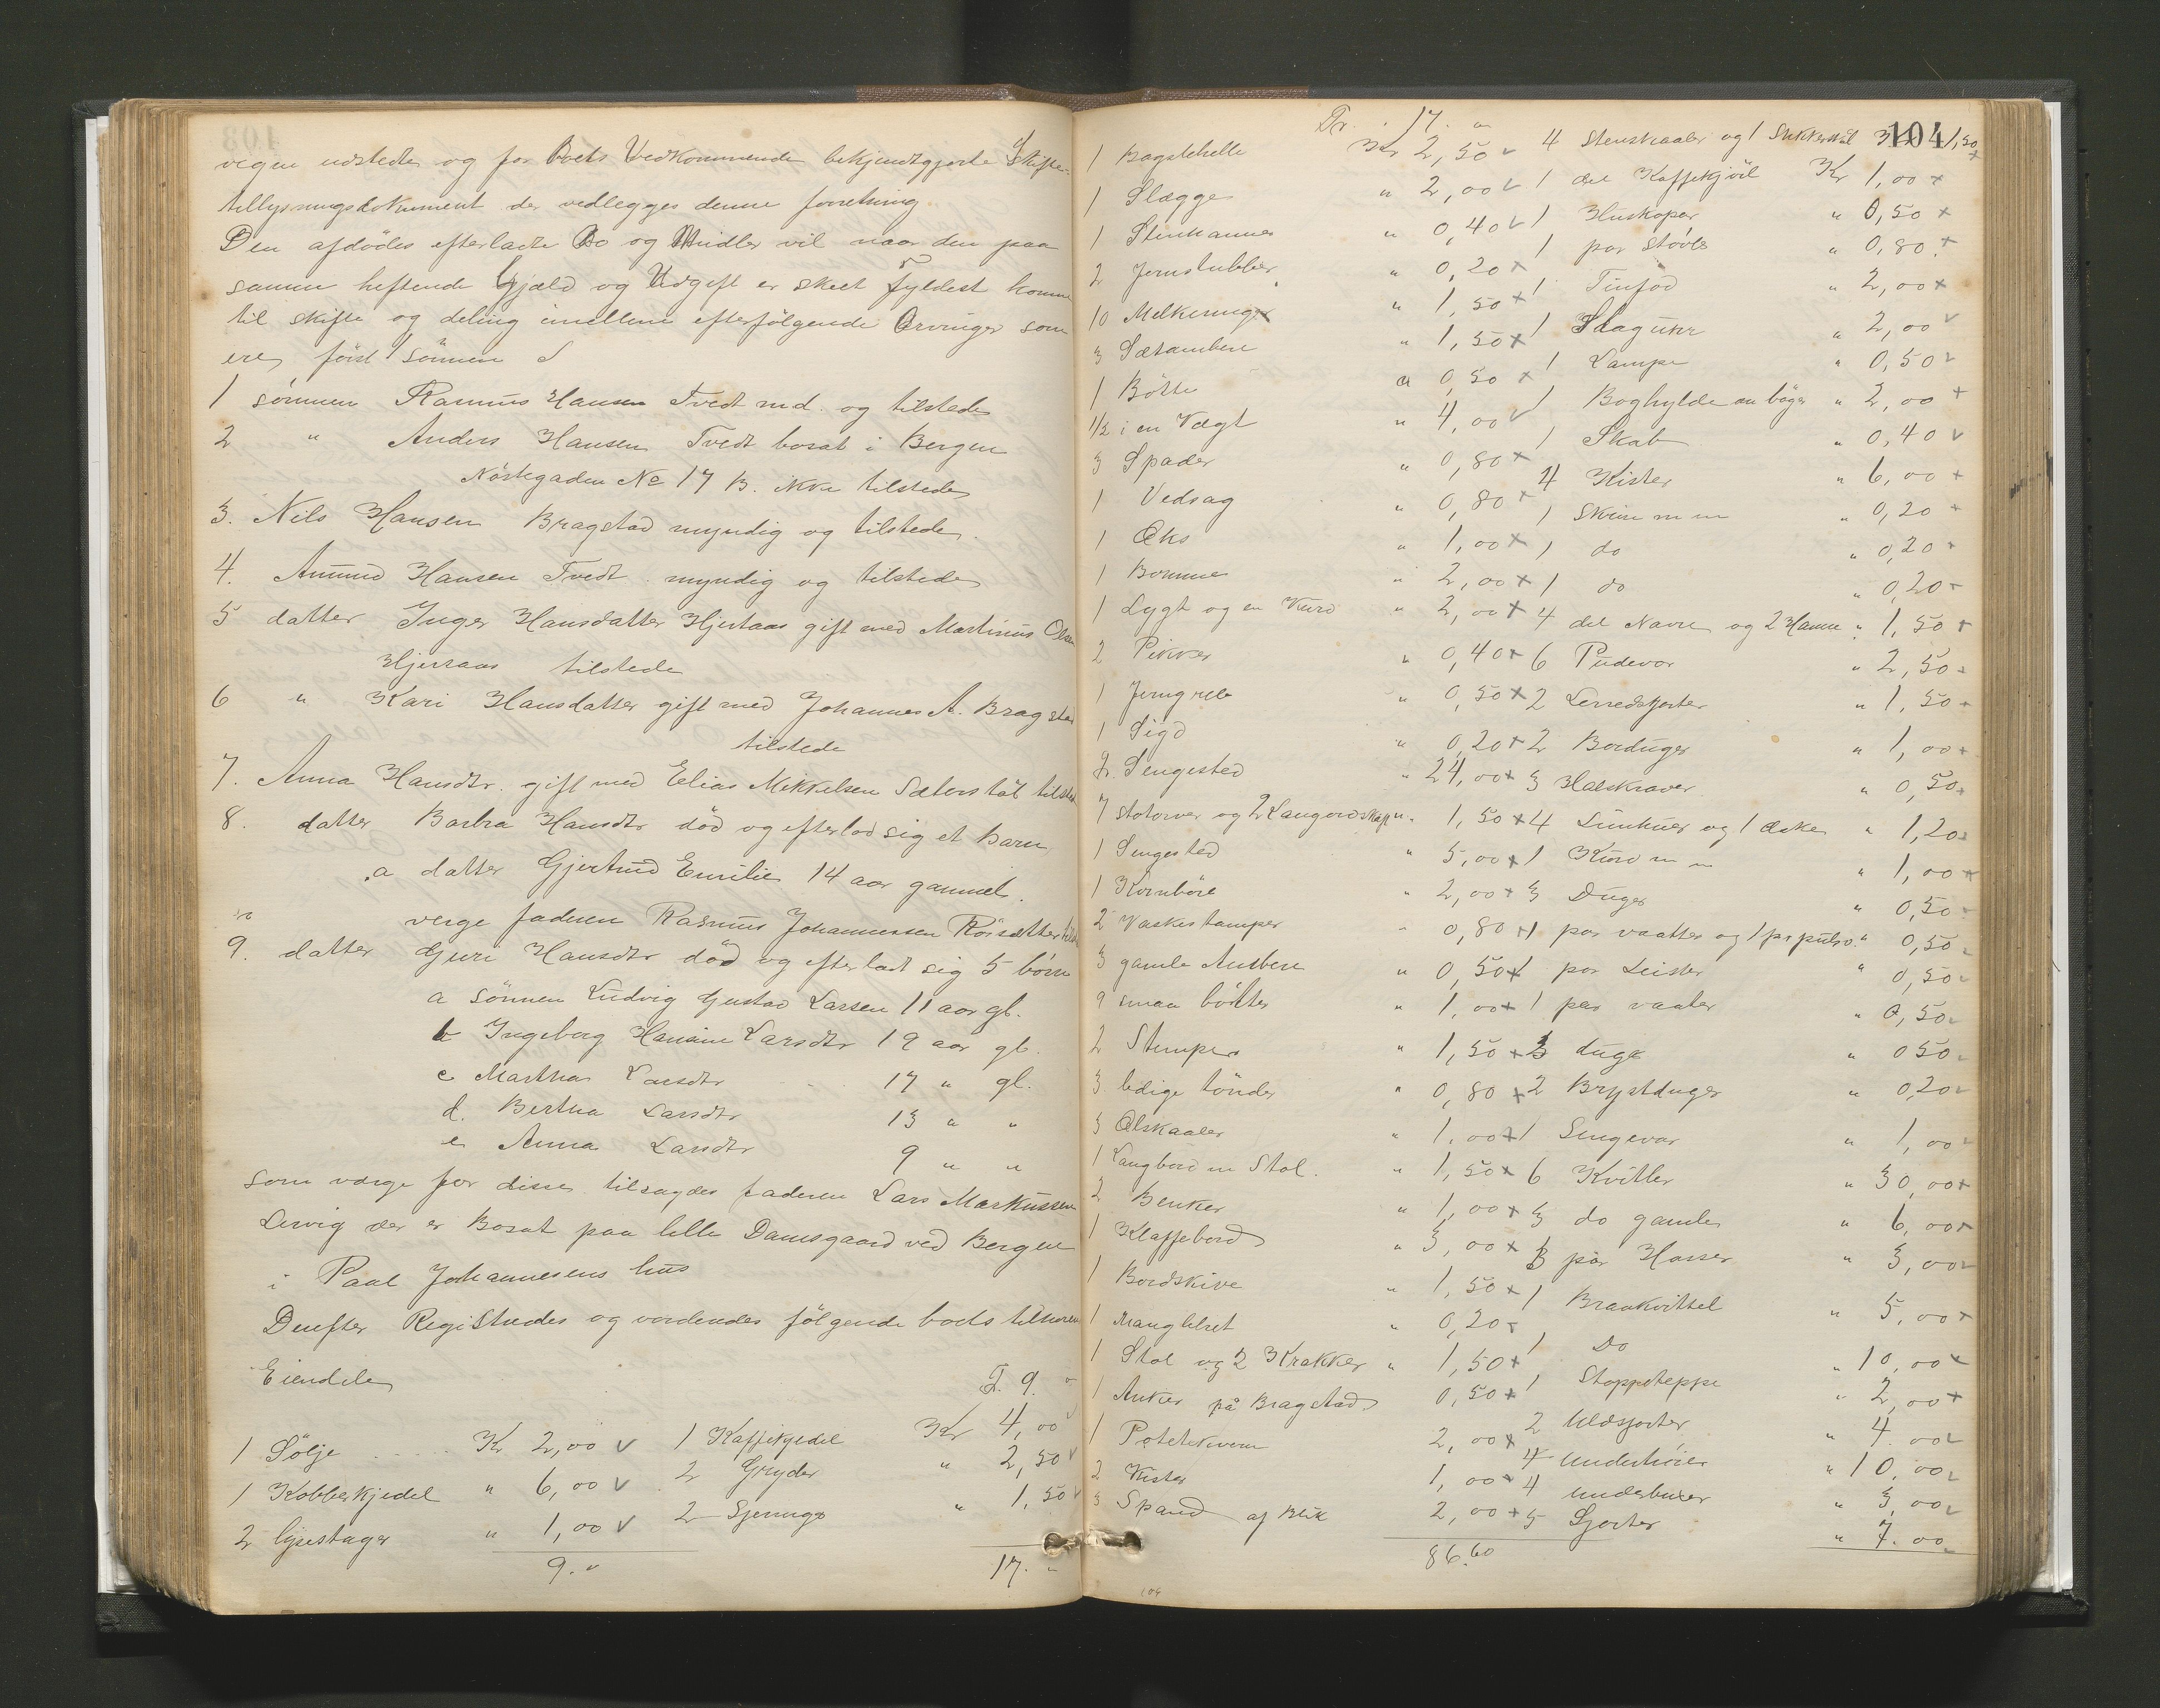 vegen udstedte og for Boets Vedkommende bekjendtgjorte Skifte-
tillysningsdokument der vedlegges denne forretning
Den afdødes efterladte Bo og Midler vil naar den paa
samme heftende Gjæld og Udgift er skeet fyldest komme
til skifte og deling imellem efterfølgende Arvinger som
ere, først Sønnen
1 sønnen Rasmus Hansen Tvedt md. og tilstede
2 " Anders Hansen Tvedt bosat i Bergen
Nöstegaden No 17 B. ikke tilstede
3. Nils Hansen Bragstad myndig og tilstede.
4. Amund Hansen Tvedt myndig og tilstede
5 datter Inger Hansdatter Hjertaas gift med Martinus Olsen
Hjertaas tilstede
6 " Kari Hansdatter gift med Johannes A. Bragstad
tilstede
7. Anna Hansdtr. gift med Elias Mikkelsen Sæterstøl tilsted
8. datter Barbra Hansdtr död og efterlod sig et barn
a datter Gjertrud Emilie 14 aar gammel.
verge faderen Rasmus Johannessen Rörsætter
9. datter Guri Hansdtr död og efterlod sig 5 börn
a Sönnen Ludvig Gustav Larsen 11 aar gl.
b Ingeborg Hansine Larsdtr 19 aar gl.
c Martha Larsdtr 17 " gl.
d. Bertha Larsdtr 13 " "
e Anna Larsdtr 9 " "
som værge for disse tilsagdes faderen Lars Markussen
Lervig der er Bosat paa lille Damsgaard ved Bergen
i Paul Johannesens hus
Derefter Registredes og vorderedes fölgende boets tilhörende
Eiendele
T. 9. "
1 Sölje Kr 2,00 v 1 Kaffekjedel Kr 4,00 v
1 Kobberkjedel " 6,00 v 2 Gryder " 2,50 v
2 lysestager " 1,00 v 2 " 1,50 v
9. " 17. "
104
Tr. 17. "
1 Bagstehelle Kr 2,50 v 4 Stenskaaler og 1 Sukkerskål Kr 1,50 x
1 Slægge " 2,00 v 1 del Kaffekjöil Kr 1,00 x
1 Stenhammer " 0,40 v 1 " 0,50 x
2 Jernstubber " 0,20 x 1 par Stövle " 0,80 x
10 Melkeringer " 1,50 x 1 Tinfad " 2,00 x
3 Sæteambere " 1,50 x 1 Slagur " 2,00 v
1 Bötte " 0,50 x 1 Lampe " 0,50 v
1/2 i en Vægt " 4,00 v 1 Boghylde m böger " 2,00 x
3 Spader " 0,80 x 1 Skab " 0,40 v
1 Vedsag " 0,80 x 4 Kister " 6,00 x
1 Øks " 1,00 x 1 Skrin m m " 0,20 x
1 Bomme " 2,00 x 1 do " 0,20 x
1 Lygt og en Kurv " 2,00 x 1 do " 0,20 x
2 Pikker " 0,40 x 4 del Navre og 2 Hamre " 1,50 x
1 Jerngreb " 0,50 x 6 Pudevar " 2,50
1 Sigd " 0,20 x 2 Lerredskjorter " 1,50
2 Sengested " 24,00 x 2 Borduger " 1,00
7 Stolorver og 2 Langordskap " 1,50 x 3 Halskraver " 0,50
1 Sengested " 5,00 x 4 Linhuer og 1 æske " 1,20
1 Kornböre " 2,00 x 1 Kurv m m " 1,00 x
2 Vaskestamper " 0,80 x 3 Duger " 0,50
3 gamle Ambere " 0,50 x 1 par vaatter og 1 pr pulsv. " 0,50
9 smaa bötter " 1,00 x 1 par Leister " 0,50
2 Stemper " 1,50 x 1 par vaater " 0,50
3 ledige tönder " 0,80 x 3 duge " 050
3 Ølskaaler " 1,00 x 2 Brystduger " 0,20
1 Langbord m Stol. " 1,50 x 1 Sengevar " 1,00
2 Benker " 1,00 x 6 Kvitler " 30,00 x
1 Klaffebord " 3,00 x 3 do gamle " 6,00
1 Bordskive " 1,50 x 3 par Hoser " 3,00
1 Mangletræt " 0,20 x 1 Braakvittel " 5,00 x
1 Stol og 2 Krakker " 1,50 x 1 Do " 10,00 x
1 Anker på Bragstad 0,50 x 1 Stoppeteppe " 2,00 x
1 Potetkvern 2,00 x 2 Uldsjorter " 4,00
2 Kister 1,00 x 4 Undertröier " 10,00
3 Spand af Blik 2,00 x 4 underbuxer " 3,00
5 Sjorter " 7.00
86.60
104